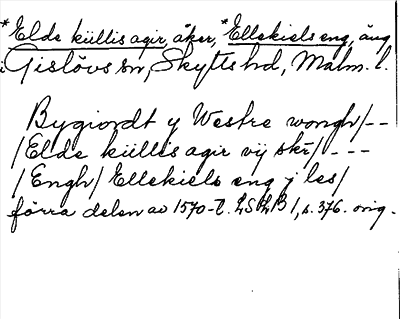 *Elde küllis agir, åker, *Ellekiels eng, äng
i Gislövs sn, Skytts hd, Malm. l.
Bygiordt y Westre wongh/--
/Elde küllis agir vij skr/---
/Engh/ Ellekiels eng j les/
förra delen av 1570-t. LSLB 1, s. 376. orig.